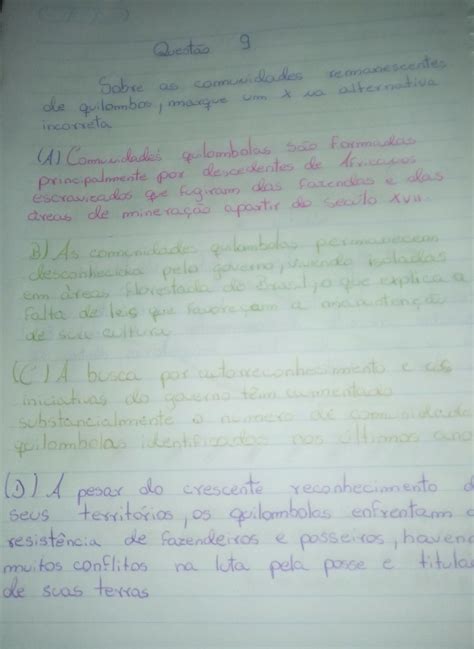 Questão 9
Sobre as comunidades remanescentes
de quilombos, marque um x na alternativa
incorreta
(A) Comunidades quilombolas são formadas
principalmente por descedentes de Africanos
escravizados que fugiram das fazendas e das
áreas de mineração apartir do seculo XVII.
B) As comunidades quilombolas permanecem
desconhecida pelo governo, vivendo isoladas
em áreas florestada do Brasil, o que explica a
falta de leis que favoreçam a manutenção
de seu cultura
(C) A busca por autorreconhecimento e as
iniciativas do governo têm aumentado
substancialmente o número de comunidade
quilombolas identificadas nos últimos ano
(D) A pesar do crescente reconhecimento d
seus territórios, os quilombolas enfrentam a
resistência de fazendeiros e posseiros, haven
muitos conflitos na luta pela posse e titula
de suas terras